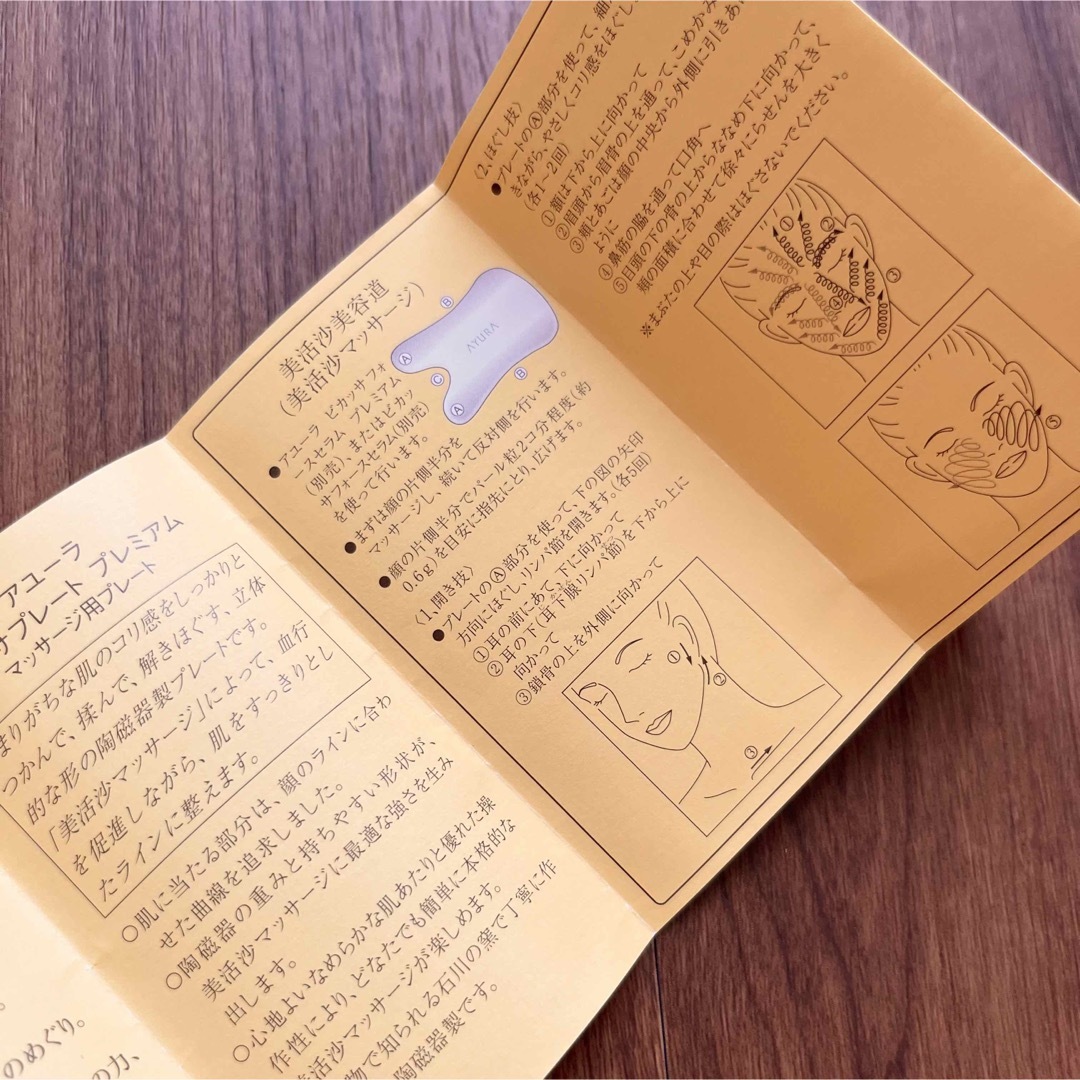 のめぐり。
の力、
アユーラ
サプレート プレミアム
マッサージ用プレート
まりがちな肌のコリ感をしっかりと
つかんで、揉んで、解きほぐす、立体
的な形の陶磁器製プレートです。
「美活沙マッサージ」によって、血行
を促進しながら、肌をすっきりとし
たラインに整えます。
○肌に当たる部分は、顔のラインに合わ
せた曲線を追求しました。
○陶磁器の重みと持ちやすい形状が、
美活沙マッサージに最適な強さを生み
出します。
○心地よいなめらかな肌あたりと優れた操
作性により、どなたでも簡単に本格的な
美活沙マッサージが楽しめます。
物で知られる石川の窯で丁寧に作
陶磁器製です。
美活沙美容道
(美活沙マッサージ)
●アユーラ ビカッサフォ
ースセラム プレミアム
(別売)、またはビカッ
サフォースセラム(別売)
を使って行います。
AYURA
Ⓐ
Ⓑ
Ⓒ
Ⓐ
Ⓑ
●まずは顔の片側半分を
マッサージし、続いて反対側を行います。
●顔の片側半分でパール粒2コ分程度(約
0.6g)を目安に指先にとり、広げます。
〈1、開き技〉
●プレートのⒶ部分を使って、下の図の矢印
方向にほぐし、リンパ節を開きます。(各5回)
①耳の前にあて、下に向かって
②耳の下(耳下腺リンパ節)を下から上に
向かって
③鎖骨の上を外側に向かって
①
②
③
〈2、ほぐし技〉
●プレートのⒶ部分を使って、細
きながら、やさしくコリ感をほぐし
(各1〜2回)
①額は下から上に向かって
②眉頭から眉骨の上を通って、こめかみ
③頬とあごは顔の中央から外側に引きあ
ように
④鼻筋の脇を通って口角へ
⑤目頭の下の骨の上からななめ下に向かって、
頬の面積に合わせて徐々にらせんを大きく
※まぶたの上や目の際はほぐさないでください。
①
②
③
④
⑤